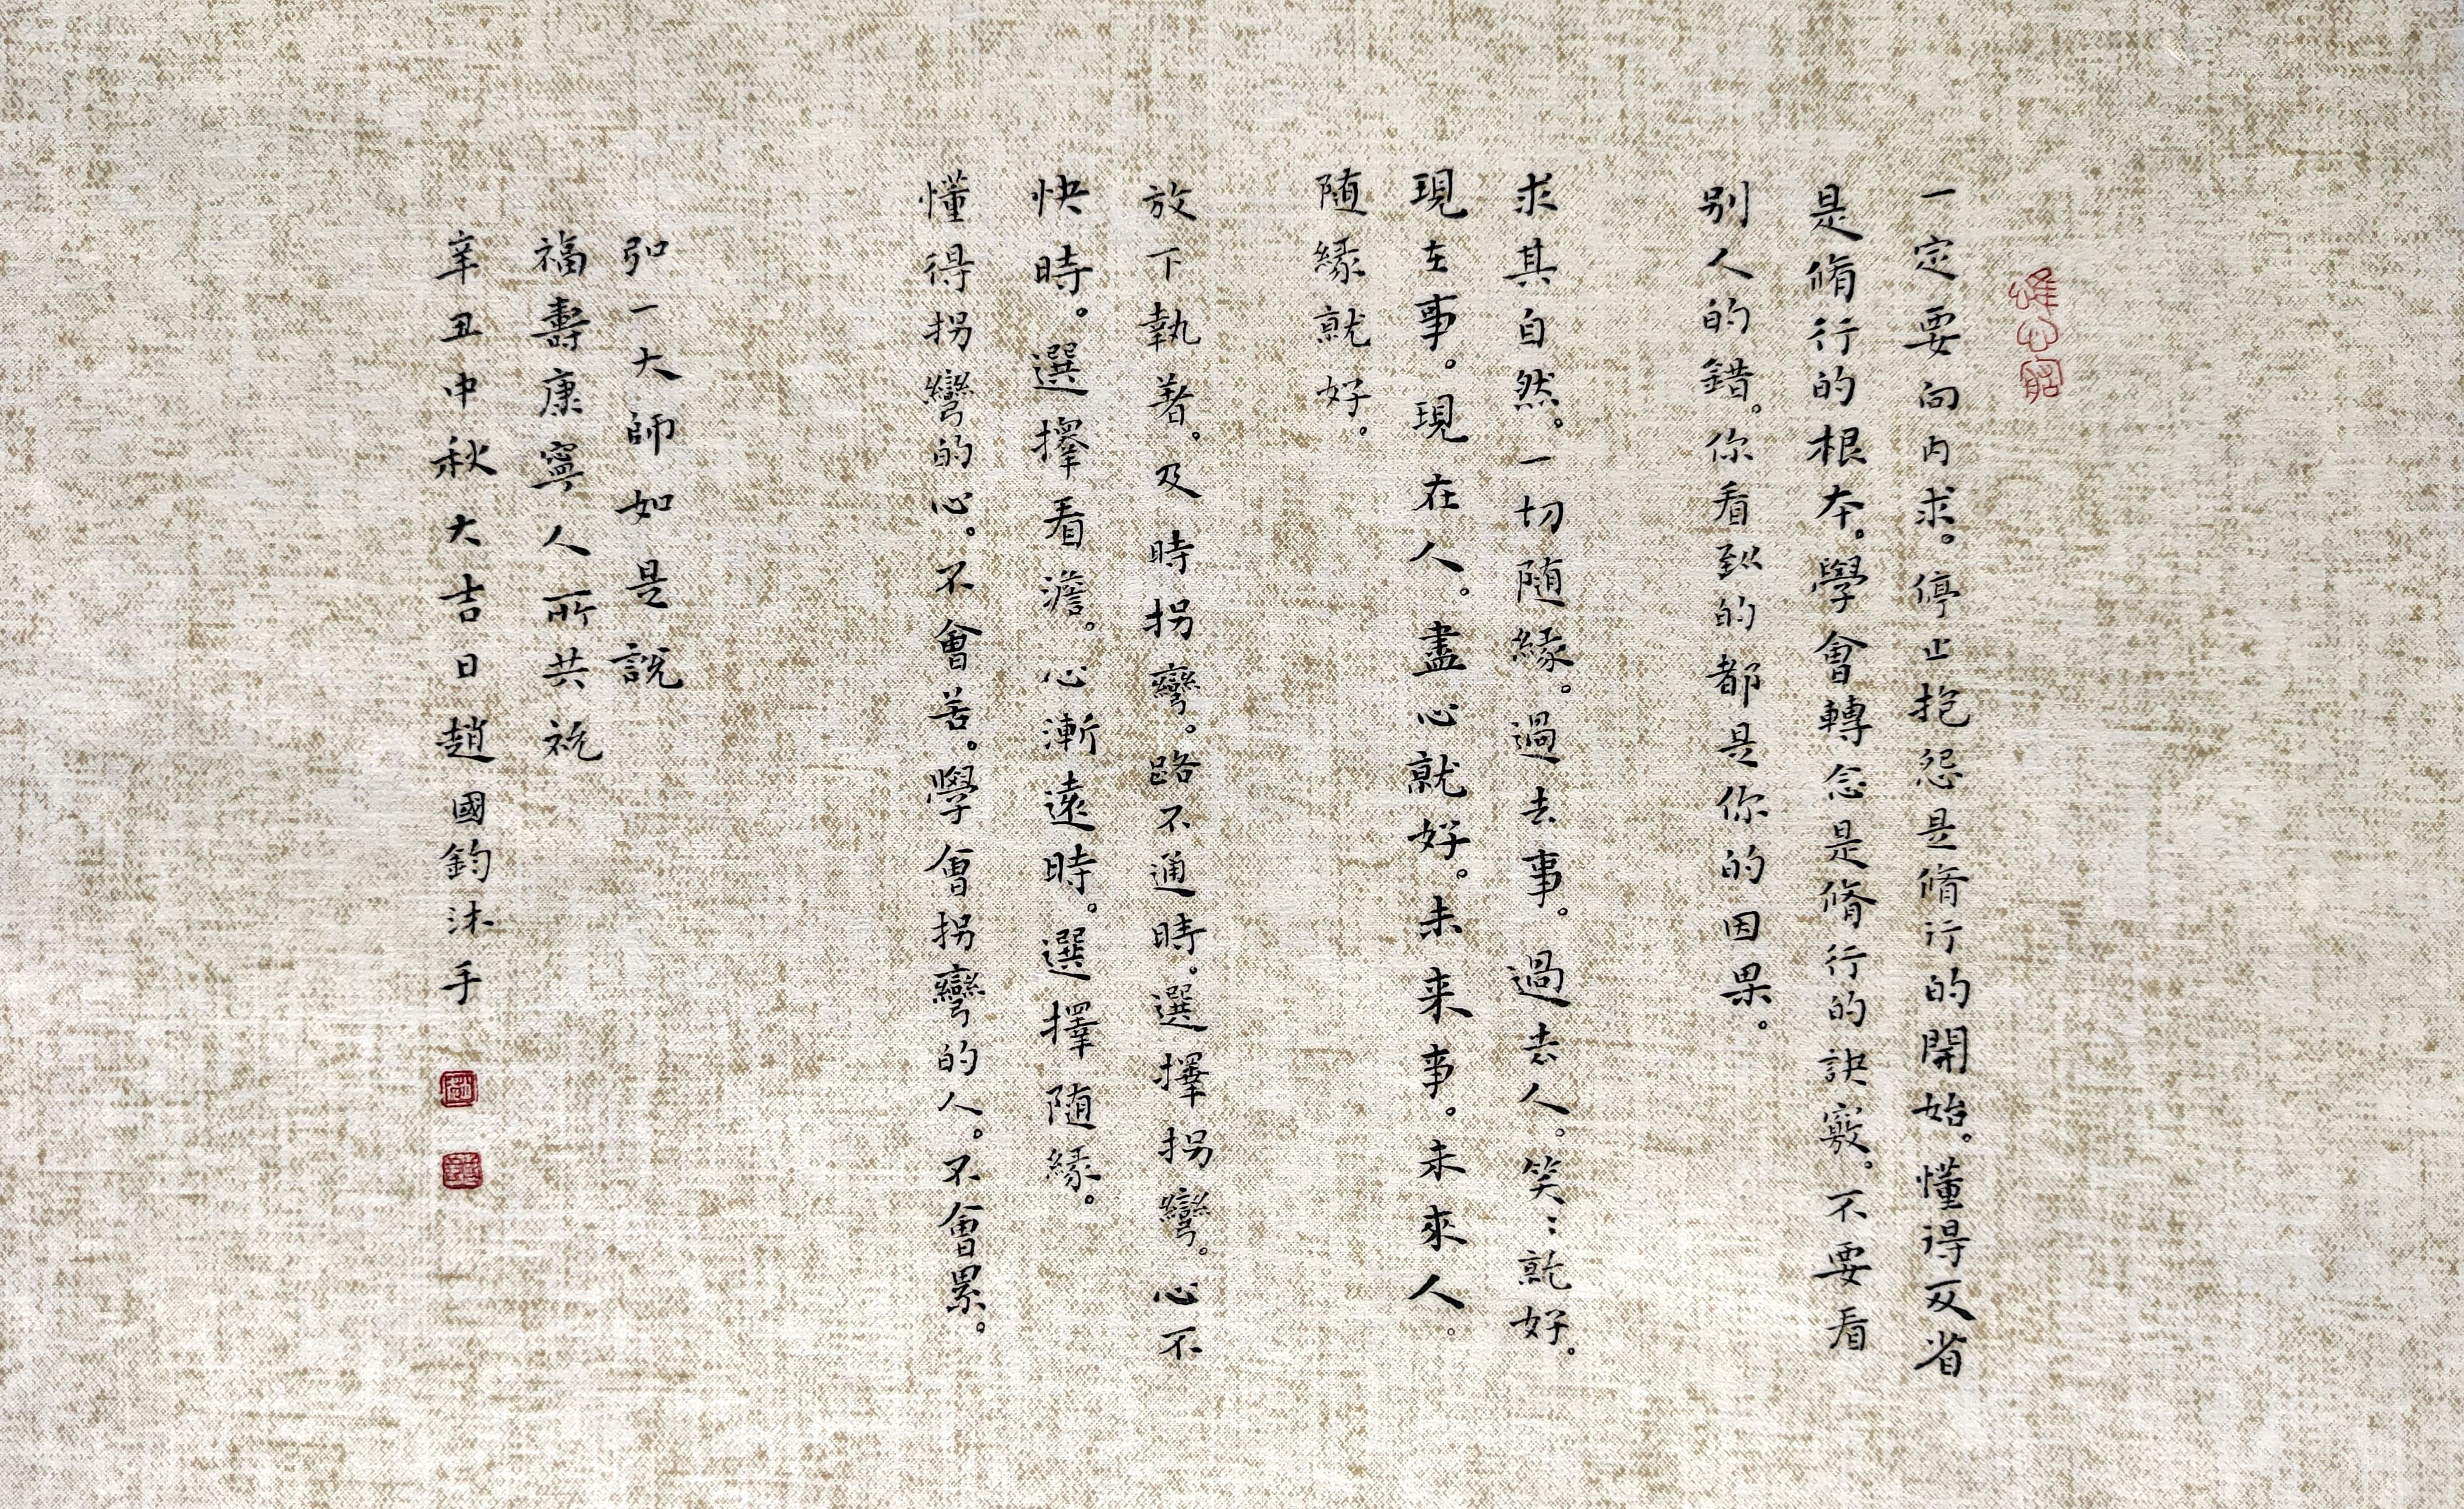 一定要向内求。停止抱怨是脩行的開始。懂得反省
是脩行的根本。學會轉念是脩行的訣竅。不要看
别人的錯。你看到的都是你的因果。
求其自然。一切随緣。過去事。過去人。笑〻就好。
現在事。現在人。盡心就好。未来事。未來人。
随緣就好。
放下執着。及時拐彎。路不通時。選擇拐彎。心不
快時。選擇看澹。心漸遠時。選擇随緣。
懂得拐彎的心。不會苦。學會拐彎的人。不會累。
弘一大師如是說
福壽康寧人所共祝
辛丑中秋大吉日趙國鈞沐手